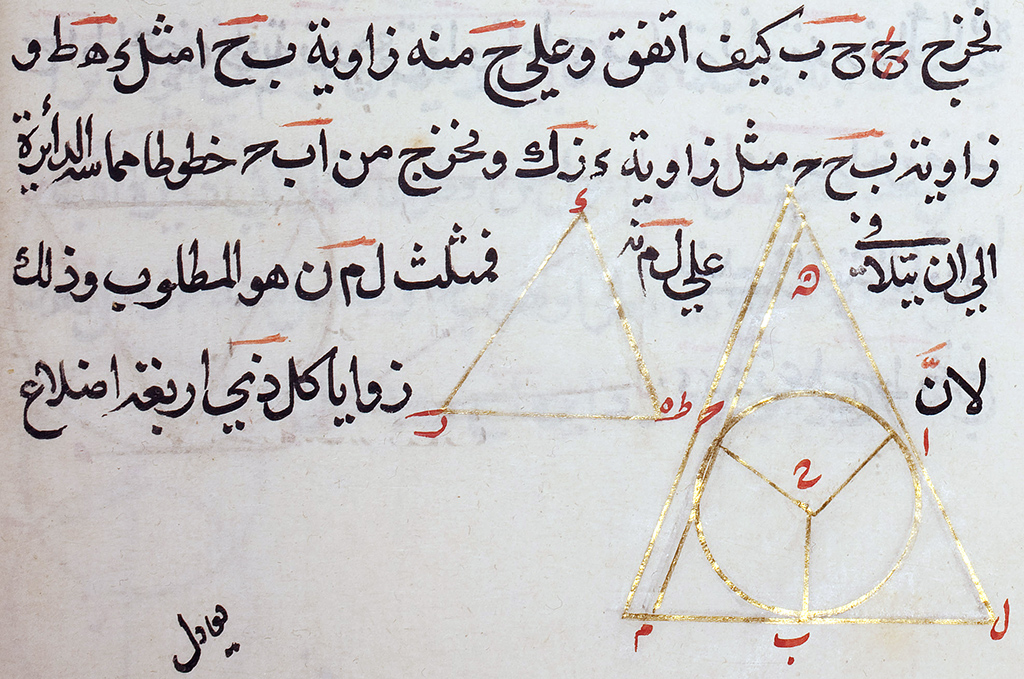 نخرج ح ح ب كيف اتفق وعلي ح منه زاوية ب ح ا مثل ء ه ط و
زاوية ب ح ح مثل زاوية ء ز ك ونخرج من ا ب ح خطوطا مماسه الدائرة
الي ان يتلاقي علي ل م ن فمثلث ل م ن هو المطلوب وذلك
لانّ زوايا كل ذي اربعة اضلاع
يعادل
ء
ه
ر
ه ط
ح
ا
ح
م
ب
ل